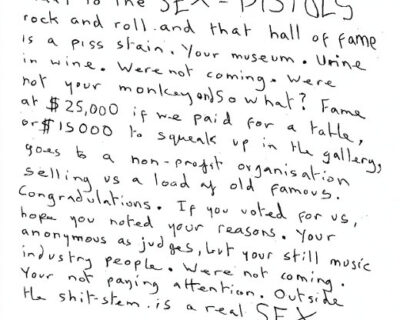 to the SEX-PISTOLS
rock and roll. and that hall of fame
is a piss stain. Your museum. Urine
in wine. Were not coming. Were
not your monkey and so what? Fame
at $25,000 if we paid for a table,
or $15000 to squeak up in the gallery,
goes to a non-profit organisation
selling us a load of old famous.
Congradulations. If you voted for us,
hope you noted your reasons. Your
anonymous as judges, but your still music
industry people. Were not coming.
Your not paying attention. Outside
the shit-stem is a real SEX